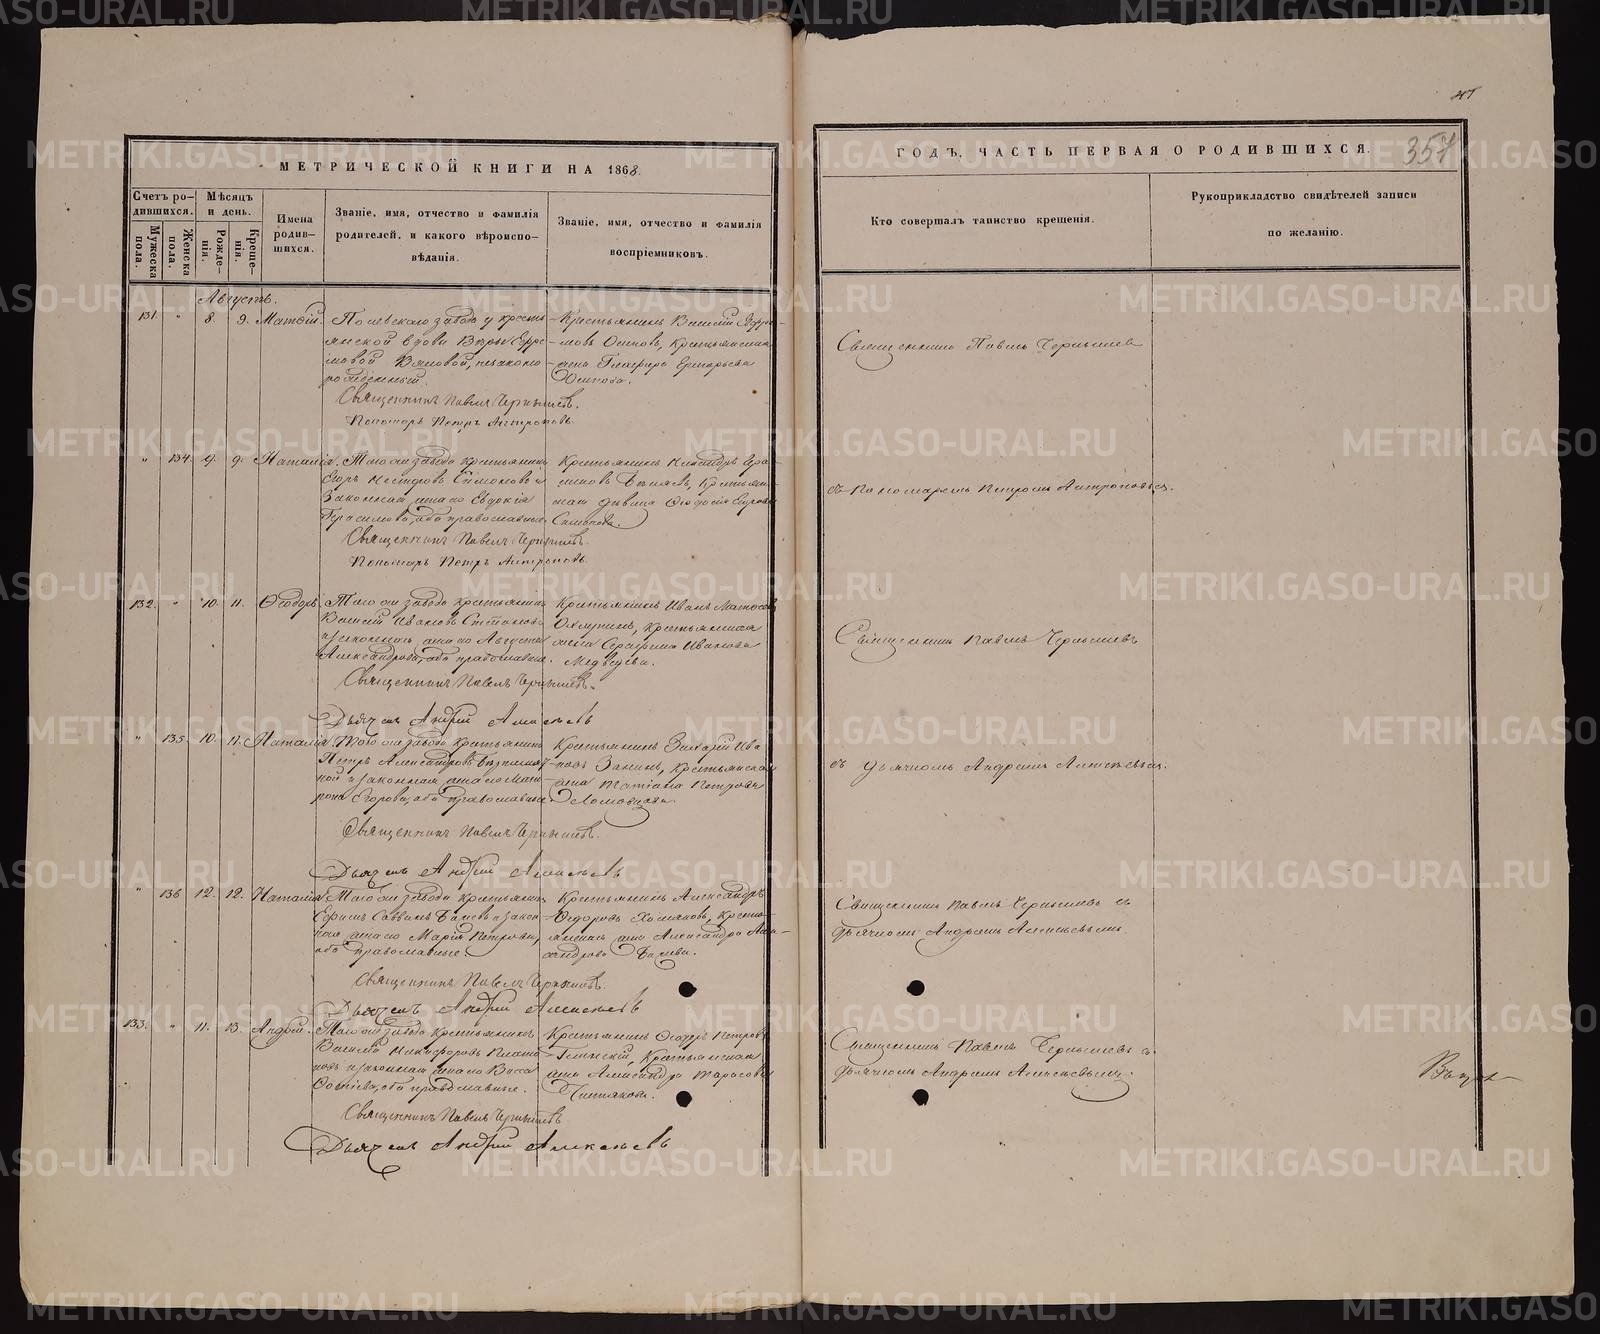 МЕТРИЧЕСКОЙ КНИГИ НА 1868.
Счетъ ро-
дившихся.
Мужеска
пола.
Женска
пола.
Мѣсяцъ
и день.
Рожде-
нія.
Креще-
нія.
Имена
родив-
шихся.
Званіе, имя, отчество и фамилія
родителей, и какого вѣроиспо-
вѣданія.
Званіе, имя, отчество и фамилія
воспріемниковъ.
Августъ.
131. " 8. 9. Матѳій. Полевскаго завода у кресть-
янской вдовы
рожденный.
Крестьянинъ Василій
Осиповъ, Крестьянская
жена Глафира Григорьева
Осипова.
Священникъ Павелъ Чернышевъ.
Пономарь Петръ Антроповъ.
" 134. 9. 9. Наталія. Того же завода крестьянинъ
Егоръ Несторовъ Симоновъ и
законная жена его Евдокія
Герасимова, оба православные.
Крестьянинъ
Крестьян-
ская дѣвица Ѳеодосія Егорова
Симонова.
Священникъ Павелъ Чернышевъ.
Пономарь Петръ Антроповъ.
132. " 10. 11. Ѳеодоръ. Того же завода крестьянинъ
Василій Ивановъ Степановъ
и законная жена его Августа
Александрова, оба православные.
Крестьянинъ Иванъ
Крестьянская
жена Серафима Иванова
Медведева.
Священникъ Павелъ Чернышевъ.
Дьячекъ Андрей Алексѣевъ
" 135. 10. 11. Наталія. Того же завода крестьянинъ
Петръ Александровъ
и законная жена его Мат-
рона Егорова, оба православные.
Крестьянинъ Захарій Ива-
новъ Занинъ, Крестьянская
жена Татіана Петрова
Ломовцова.
Священникъ Павелъ Чернышевъ.
Дьячекъ Андрей Алексѣевъ
" 136 12. 12. Наталія. Того же завода крестьянинъ
Ефимъ Саввинъ и закон-
ная жена его Марія Петрова,
оба православные.
Крестьянинъ Александръ
Ѳедоровъ Хомяковъ, Кресть-
янская жена Александра Алек-
сандрова
Священникъ Павелъ Чернышевъ.
Дьячекъ Андрей Алексѣевъ
133. " 11. 13. Андрей. Того же завода Крестьянинъ
Василій Никифоровъ
и законная жена его Васса
оба православные.
Крестьянинъ Ѳеодоръ Петровъ
Глинскій, Крестьянская
жена Александра Тарасова
Священникъ Павелъ Чернышевъ
Дьячекъ Андрей Алексѣевъ
ГОДЪ, ЧАСТЬ ПЕРВАЯ О РОДИВШИХСЯ.
357
Кто совершалъ таинство крещенія.
Рукоприкладство свидѣтелей записи
по желанію.
Священникъ Павелъ Чернышевъ
съ Пономаремъ Петромъ Антроповымъ.
Священникъ Павелъ Чернышевъ
съ дьячкомъ Андреемъ Алексѣевымъ.
Священникъ Павелъ Чернышевъ съ
дьячкомъ Андреемъ Алексѣевымъ.
Священникъ Павелъ Чернышевъ съ
дьячкомъ Андреемъ Алексѣевымъ.
METRIKI.GASO-URAL.RU